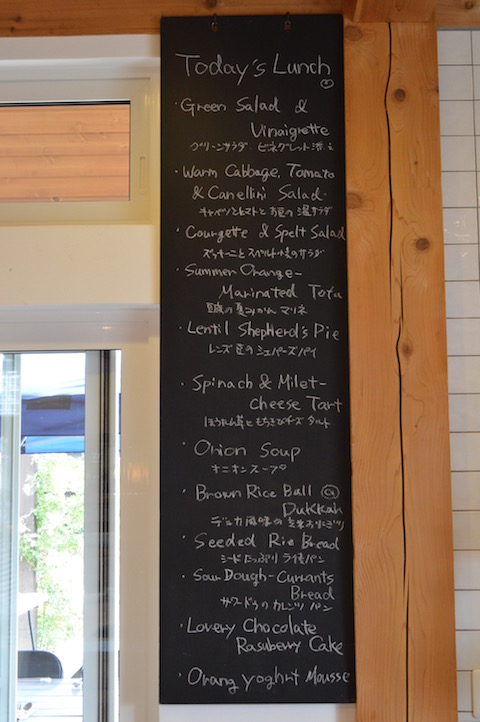 Today's Lunch
· Green Salad &
Vinaigrette
グリーンサラダ ビネグレット添え
· Warm Cabbage, Tomato
& Canellini Salad-
キャベツとトマトとお豆の温サラダ
· Courgette & Spelt Salad
ズッキーニとスペルト小麦のサラダ
· Summer Orange-
Marinated Tofu
豆腐の夏みかんマリネ
· Lentil Shepherd's Pie
レンズ豆のシェパーズパイ
· Spinach & Milet-
Cheese Tart
ほうれん草ともちきびチーズタルト
· Onion Soup
オニオンスープ
· Brown Rice Ball
Dukkah
デュカ風味の玄米おにぎり
· Seeded Rie Bread
シードたっぷりライ麦パン
· Sour Dough-Currants
Bread
サワードゥのカレンツパン
· Lovery Chocolate
Rasuberry Cake
· Orang yoghrt Mousse